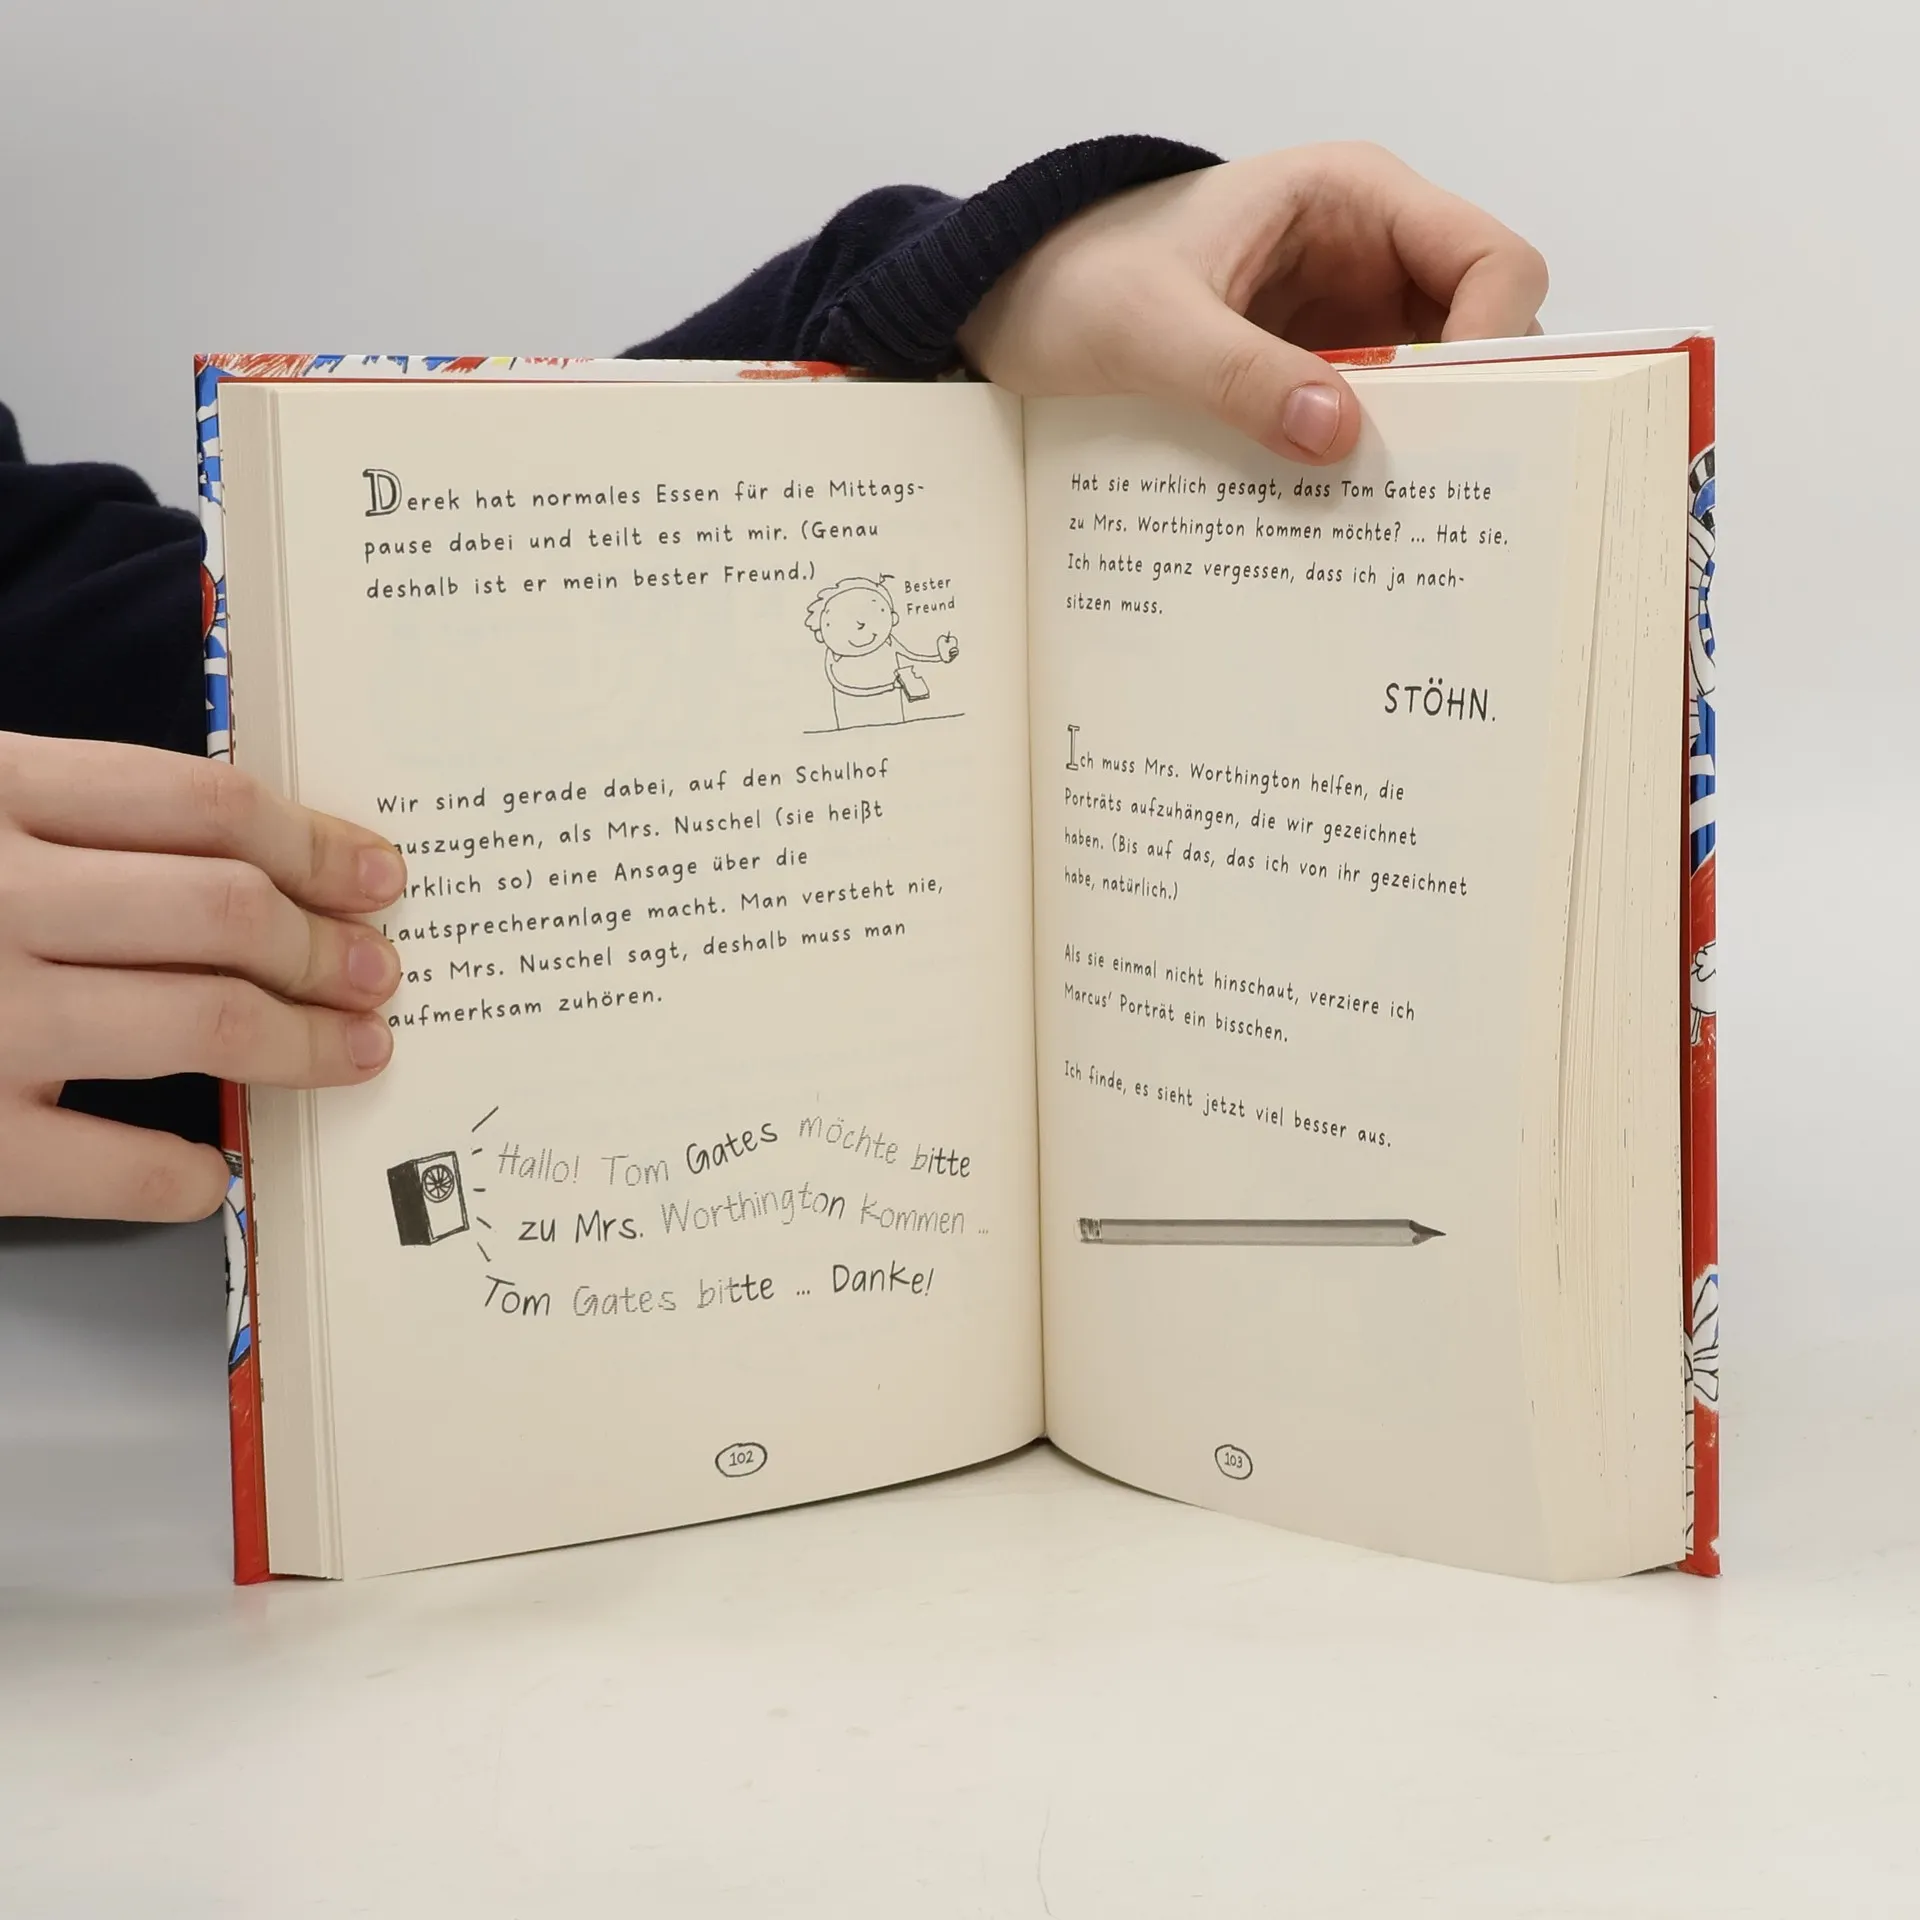 Derek hat normales Essen für die Mittags-
pause dabei und teilt es mit mir. (Genau
deshalb ist er mein bester Freund.)
Bester
Freund
Wir sind gerade dabei, auf den Schulhof
auszugehen, als Mrs. Nuschel (sie heißt
irklich so) eine Ansage über die
Lautsprecheranlage macht. Man versteht nie,
as Mrs. Nuschel sagt, deshalb muss man
aufmerksam zuhören.
Hallo! Tom Gates möchte bitte
zu Mrs. Worthington kommen ...
Tom Gates bitte ... Danke!
102
Hat sie wirklich gesagt, dass Tom Gates bitte
zu Mrs. Worthington kommen möchte? ... Hat sie.
Ich hatte ganz vergessen, dass ich ja nach-
sitzen muss.
STÖHN.
Ich muss Mrs. Worthington helfen, die
Porträts aufzuhängen, die wir gezeichnet
haben. (Bis auf das, das ich von ihr gezeichnet
habe, natürlich.)
Als sie einmal nicht hinschaut, verziere ich
Marcus' Porträt ein bisschen.
Ich finde, es sieht jetzt viel besser aus.
103